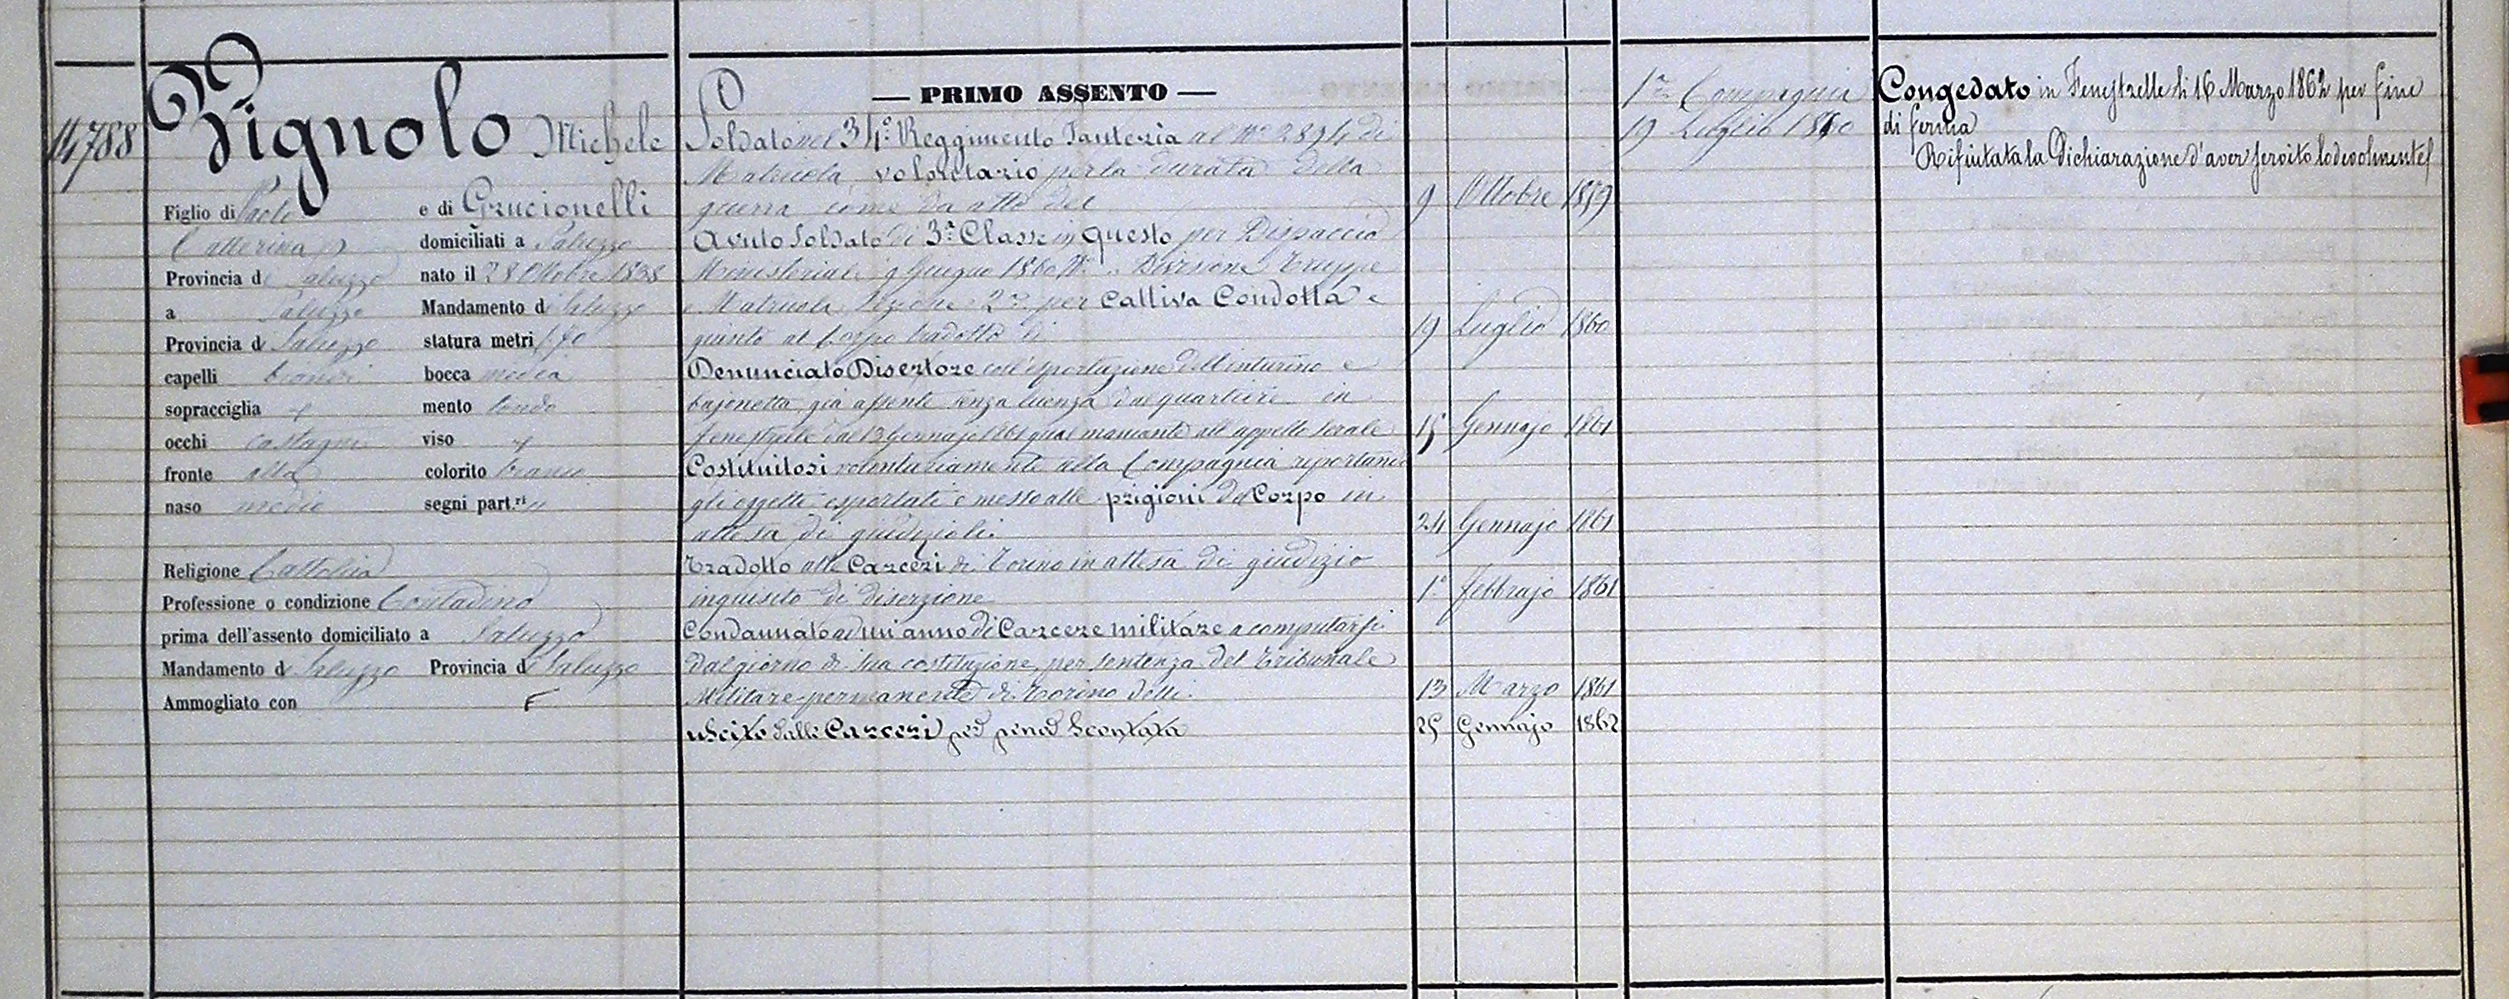 14788
Vignolo Michele
Figlio di Paolo e di Grucionelli
Catterina domiciliati a Saluzzo
Provincia di Saluzzo nato il 28 Ottobre 1838
a Saluzzo Mandamento di Saluzzo
Provincia di Saluzzo statura metri 1,70
capelli biondi bocca media
sopracciglia mento tondo
occhi castagni viso
fronte alta colorito bianco
naso medio segni part.ri
Religione Cattolica
Professione o condizione Contadino
prima dell'assento domiciliato a Saluzzo
Mandamento di Saluzzo Provincia di Saluzzo
Ammogliato con
— PRIMO ASSENTO —
Soldato nel 34° Reggimento Fanteria al N° 2894 di
Matricola, volontario per la durata della
guerra come da atto del 9 Ottobre 1859
Avuto Soldato di 3ª Classe in questo per Dispaccio
Ministeriale 9 Giugno 1860 N° Divisione Truppe
e Matricola Sezione 2ª per Cattiva Condotta e
giunto al Corpo tradotto di 19 Luglio 1860
Denunciato Disertore coll'esportazione dell'inturino e
bajonetta, già assente senza licenza dal quartiere in
Fenestrelle dal 13 Gennajo 1861 qual mancante all'appello serale 15 Gennajo 1861
Costituitosi volontariamente alla Compagnia riportando
gli oggetti esportati e messo alle prigioni del Corpo in
attesa di giudizio li 24 Gennajo 1861
Tradotto alle Carceri di Torino in attesa di giudizio
inquisito di diserzione 1° Febbrajo 1861
Condannato ad un'anno di Carcere militare a computarsi
dal giorno di sua costituzione, per sentenza del Tribunale
Militare permanente di Torino delli 13 Marzo 1861
uscito dalle Carceri per pena Scontata 25 Gennajo 1862
1ª Compagnia
19 Luglio 1860
Congedato in Fenestrelle li 16 Marzo 1862 per fine
di ferma
Rifiutata la Dichiarazione d'aver servito lodevolmente